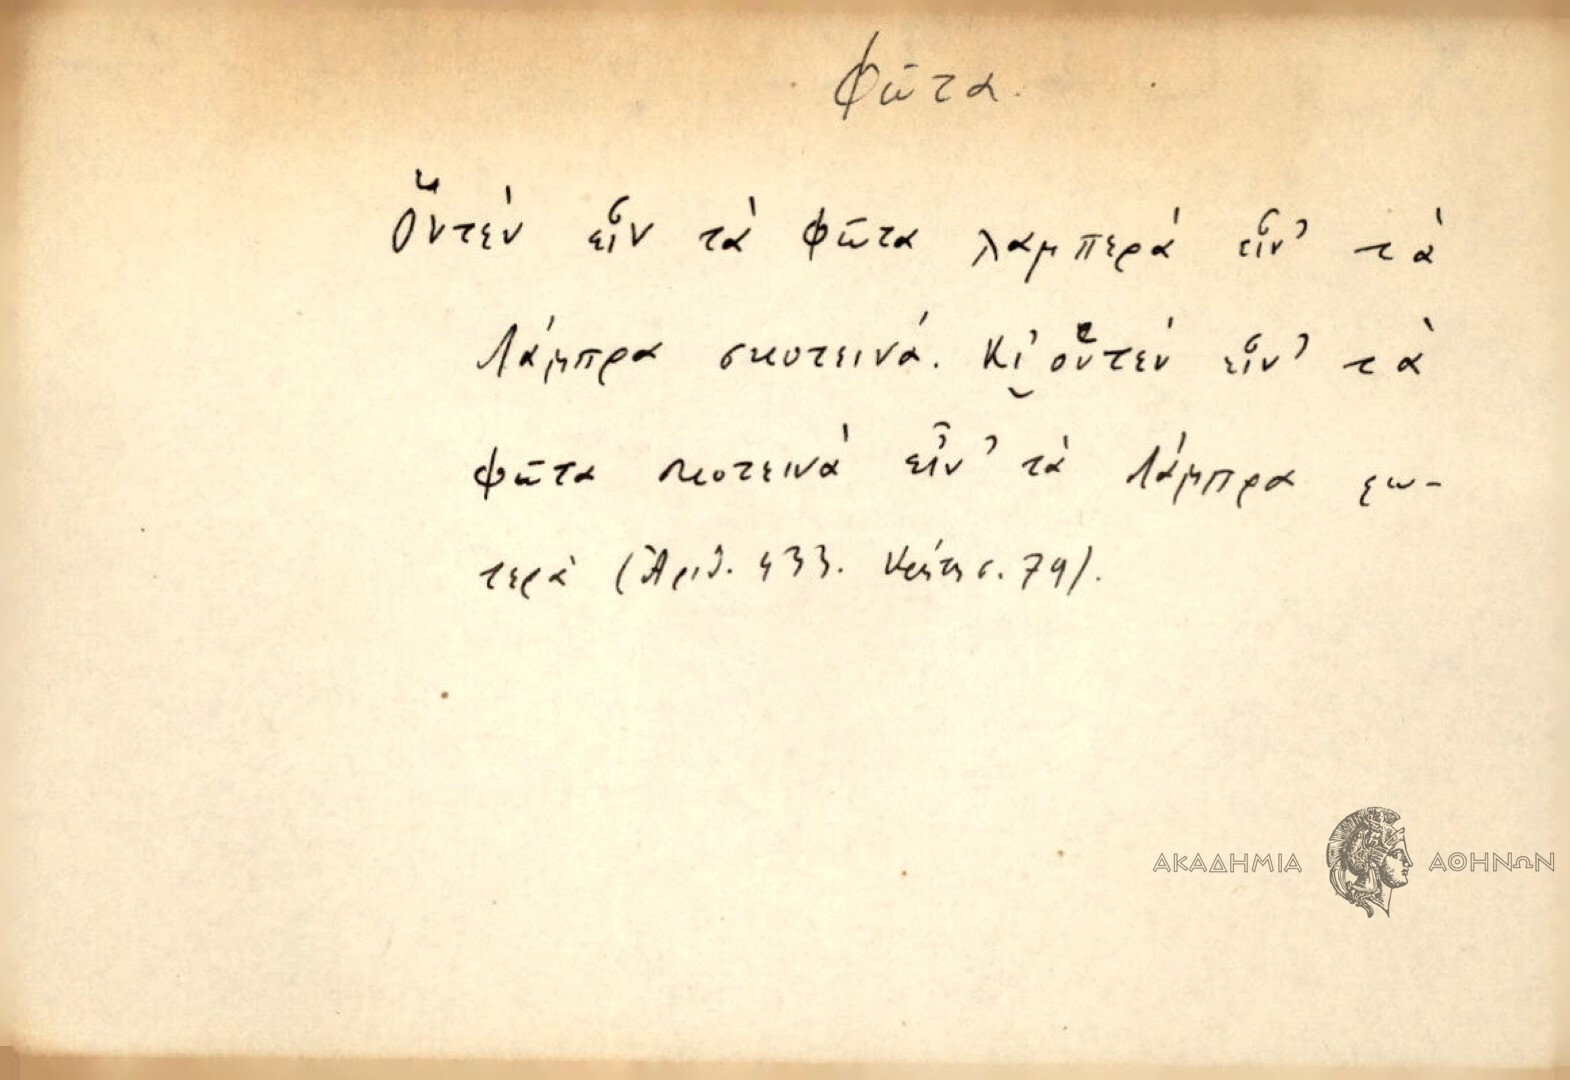 Φῶτα.
Ὅντεν εἶν τὰ Φῶτα λαμπερά εἶν' τὰ
Λάμπρα σκοτεινά. Κι' ὅντεν εἶν' τὰ
Φῶτα σκοτεινὰ εἶν' τὰ Λάμπρα φω-
τερὰ (Ἀριθ. 433. Κρήτη σ. 79).
ΑΚΑΔΗΜΙΑ ΑΘΗΝΩΝ